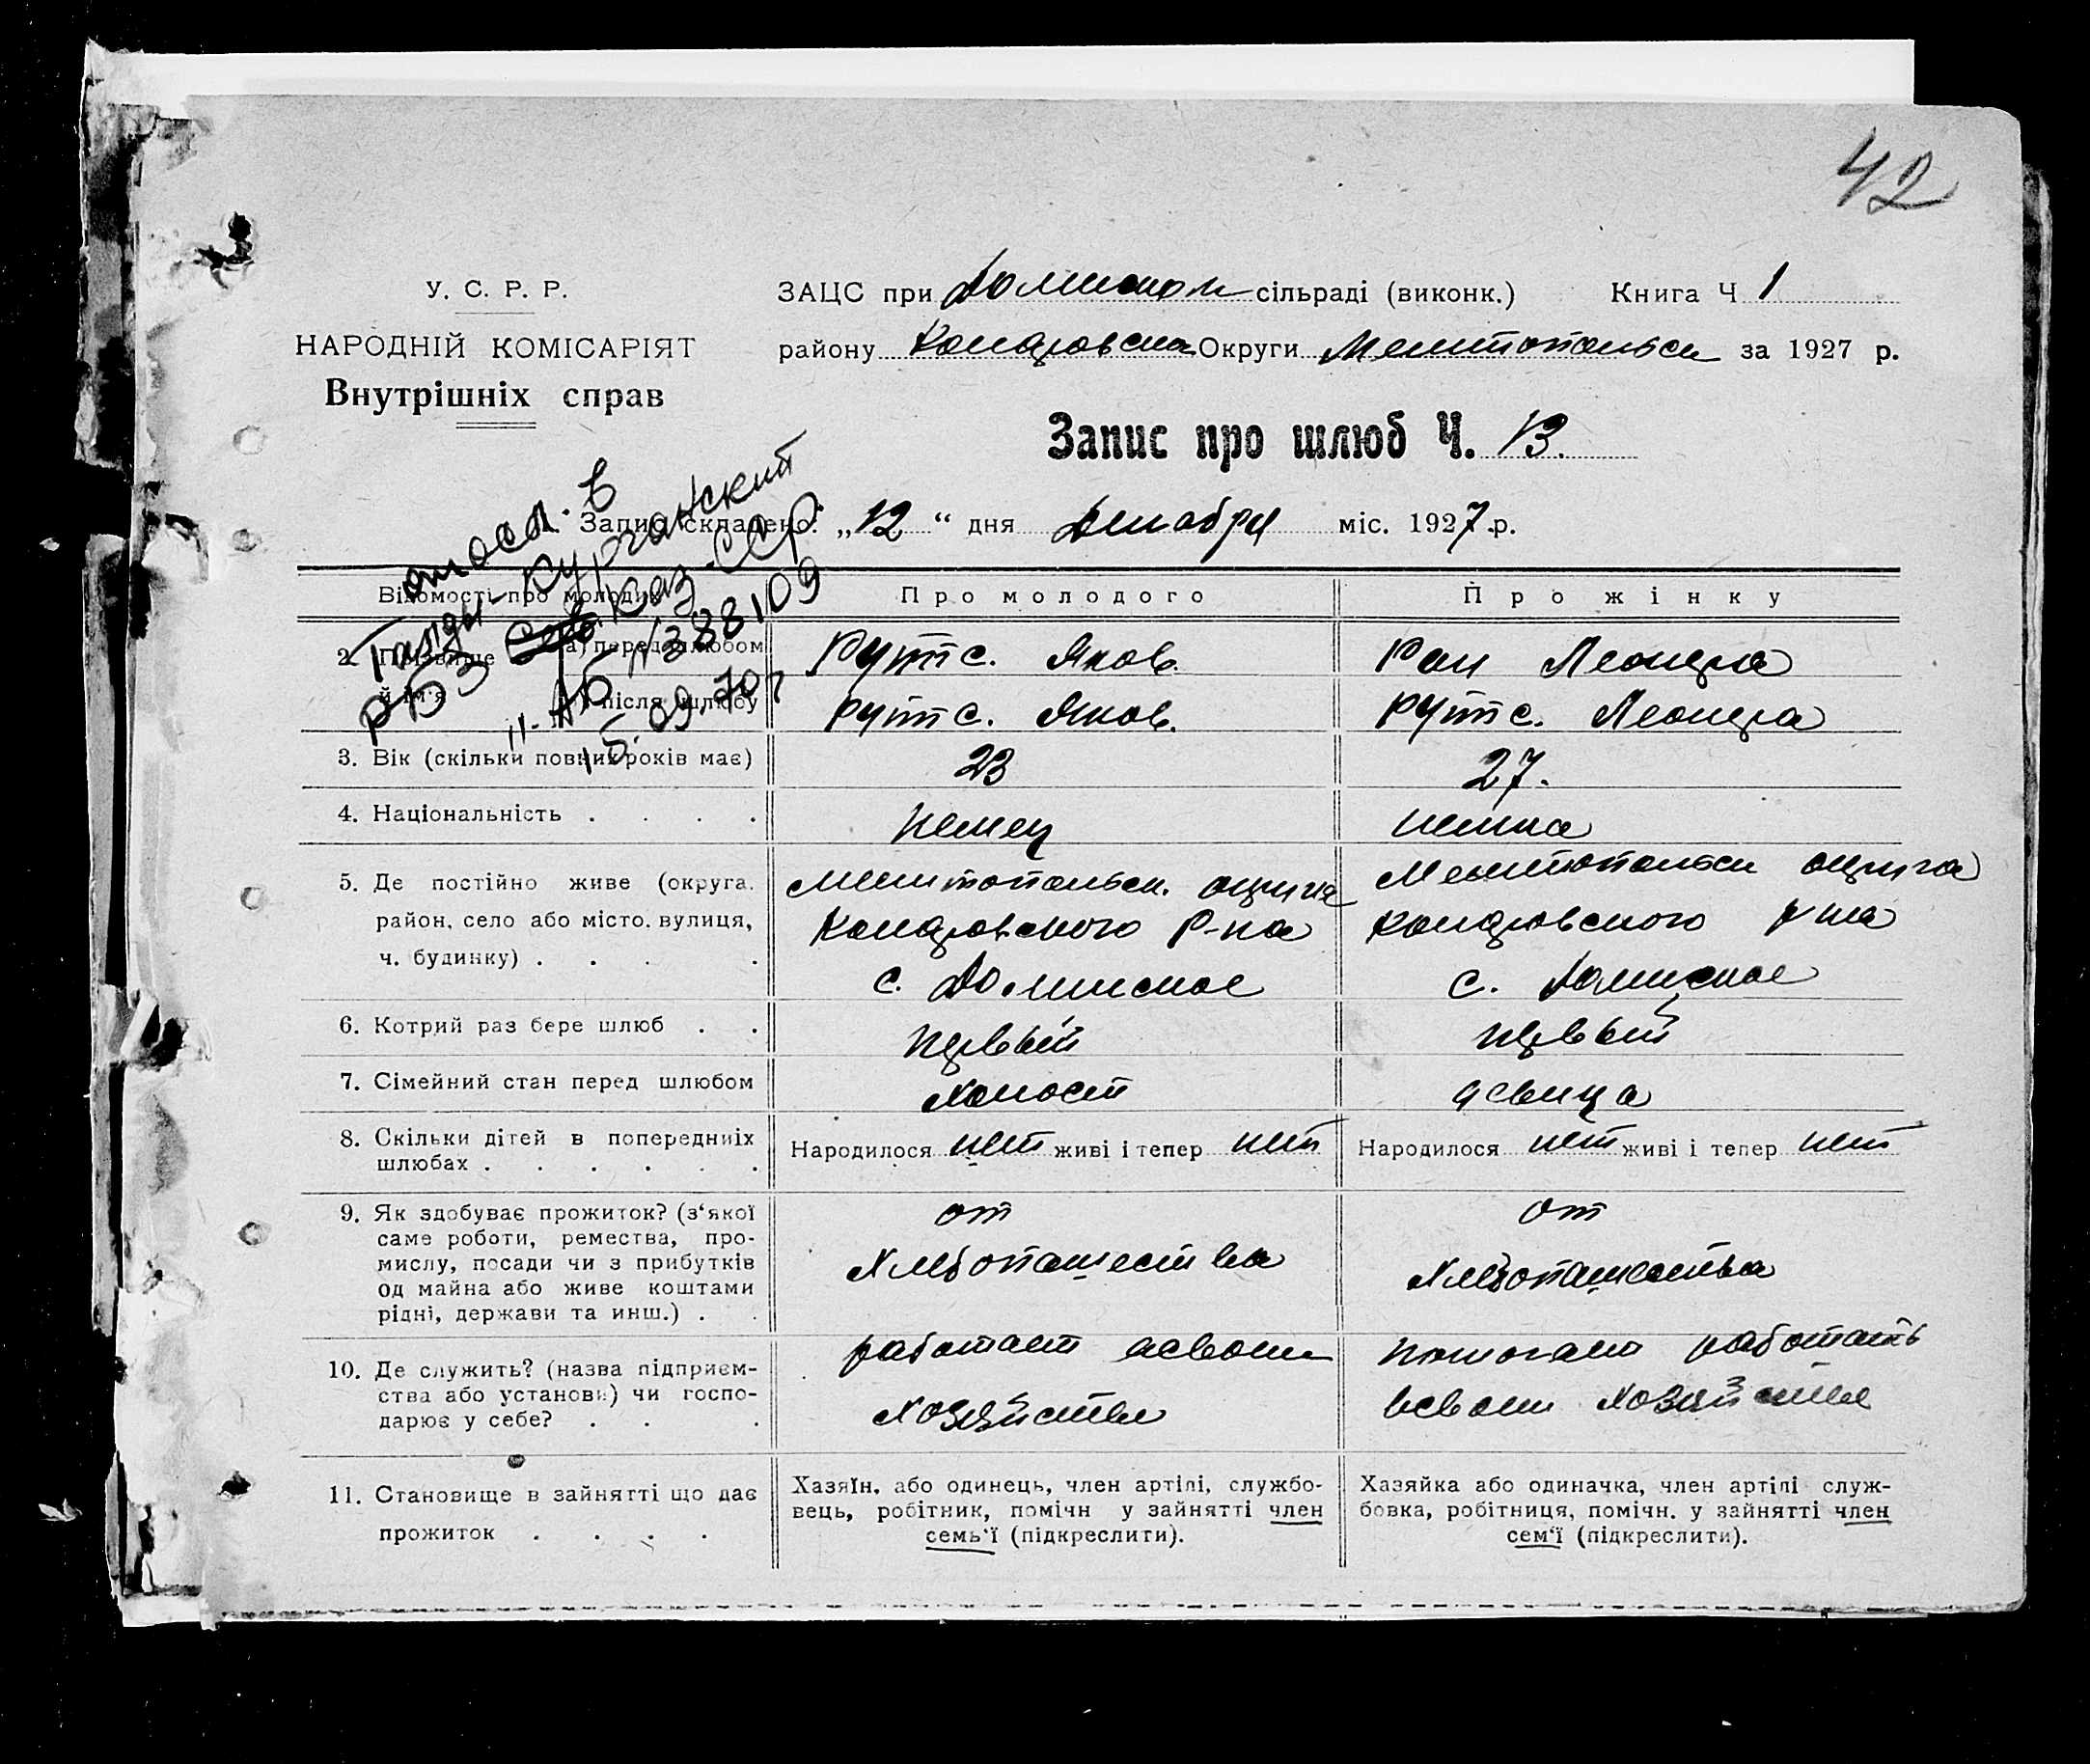 42
У. С. Р. Р.
НАРОДНІЙ КОМІСАРІЯТ
Внутрішніх справ
ЗАЦС при сільраді (виконк.) Книга Ч 1
району Округи за 1927 р.
Запис про шлюб Ч. 13.
Запис складено: „12“ дня Декабря міс. 1927 р.
отосл. в
Талды-Курганский
Каз. ССР.
II-АБ N 388109
15.09.70 г
Відомості про молодих
Про молодого
Про жінку
2. Прізвище й ім'я
а) перед шлюбом Рутс. Яков. Рап Леонора
після шлюбу Рутс. Яков. Рутс. Леонора
3. Вік (скільки повних років має) 23 27.
4. Національність . . . . немец немка
5. Де постійно живе (округа, район, село або місто, вулиця, ч. будинку) . . . .
Мелитопольск. округа
р-на
с.
Мелитопольск округа
р-на
с.
6. Котрий раз бере шлюб . . первый первый
7. Сімейний стан перед шлюбом холост девица
8. Скільки дітей в попередніх шлюбах . . . . . .
Народилося нет живі і тепер нет
Народилося нет живі і тепер нет
9. Як здобуває прожиток? (з'якої
саме роботи, ремества, про-
мислу, посади чи з прибутків
од майна або живе коштами
рідні, держави та инш.) . .
от
хлебопашества
от
хлебопашества
10. Де служить? (назва підприєм-
ства або установи) чи госпо-
дарює у себе? . . .
работает всвоем
хозяйстве
помогает работать
всвоем хозяйстве
11. Становище в зайнятті що дає
прожиток . . . .
Хазяїн, або одинець, член артілі, службо-
вець, робітник, помічн у зайнятті член
семь'ї (підкреслити).
Хазяйка або одиначка, член артілі служ-
бовка, робітниця, помічн. у зайнятті член
сем'ї (підкреслити).